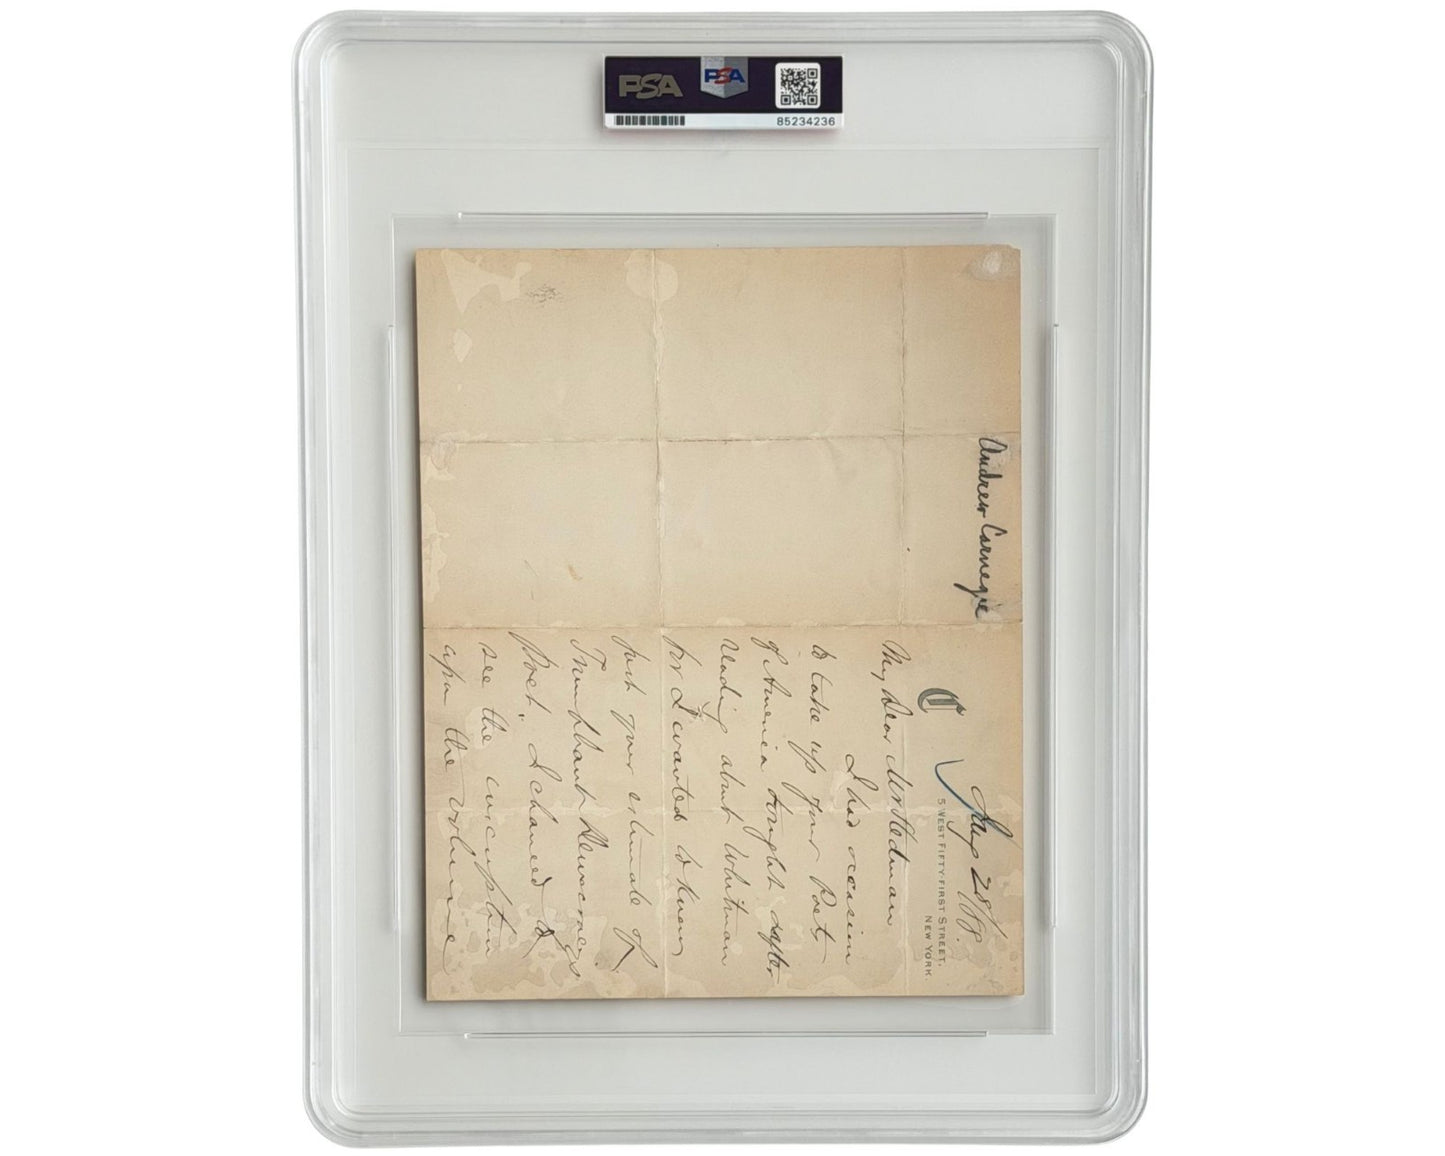 PSA
PSA
85234236
Andrew Carnegie
Sep 28/88.
5 WEST FIFTY-FIRST STREET,
NEW YORK.
My Dear
I had occasion
to take up your Poets
of America tonight after
reading about Whitman
for I wanted to know
just your estimate of
Triumphant Democracy's
Poet. I chanced to
see the inscription
upon the volume